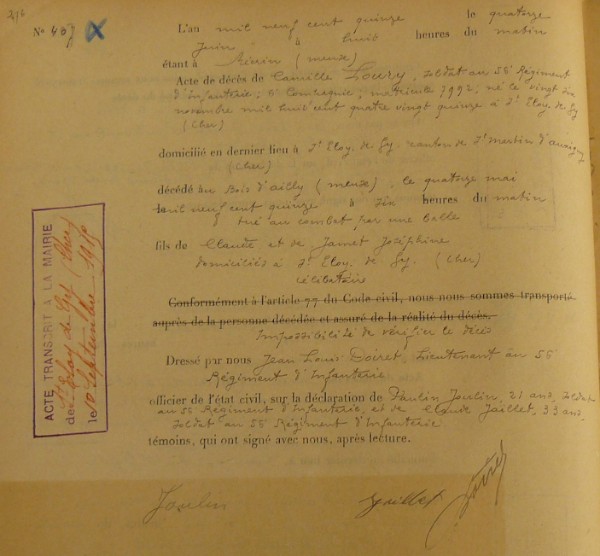 276
N° 407 X
L'an mil neuf cent quinze le quatorze
Juin à huit heures du matin
étant à (Meuse)
Acte de décès de Camille Loury, soldat au 56e Régiment
d'infanterie, 6e Compagnie, matricule 7992, né le vingt six
novembre mil huit cent quatre vingt quinze à St Eloy de Gy
(Cher)
domicilié en dernier lieu à St Eloy de Gy canton de St Martin d'auxigny
(Cher)
décédé au Bois d'ailly (meuse), le quatorze mai
mil neuf cent quinze à six heures du matin
tué au combat, par une balle
fils de Claude et de Jamet Joséphine
domiciliés à St Eloy de Gy (Cher)
célibataire
Conformément à l'article 77 du Code civil, nous nous sommes transporté
auprès de la personne décédée et assuré de la réalité du décès.
Impossibilité de vérifier le décès
Dressé par nous Jean Louis Doiret, Lieutenant au 56e
Régiment d'Infanterie
officier de l'état civil, sur la déclaration de Paulin Joulin, 21 ans, soldat
au 56 Régiment d'Infanterie, et de Claude Jaillet, 33 ans,
soldat au 56 Régiment d'Infanterie
témoins, qui ont signé avec nous, après lecture.
Joulin Jaillet Doiret
ACTE TRANSCRIT A LA MAIRIE
de St Eloy de Gy (Cher)
le 10 Septembre 1915